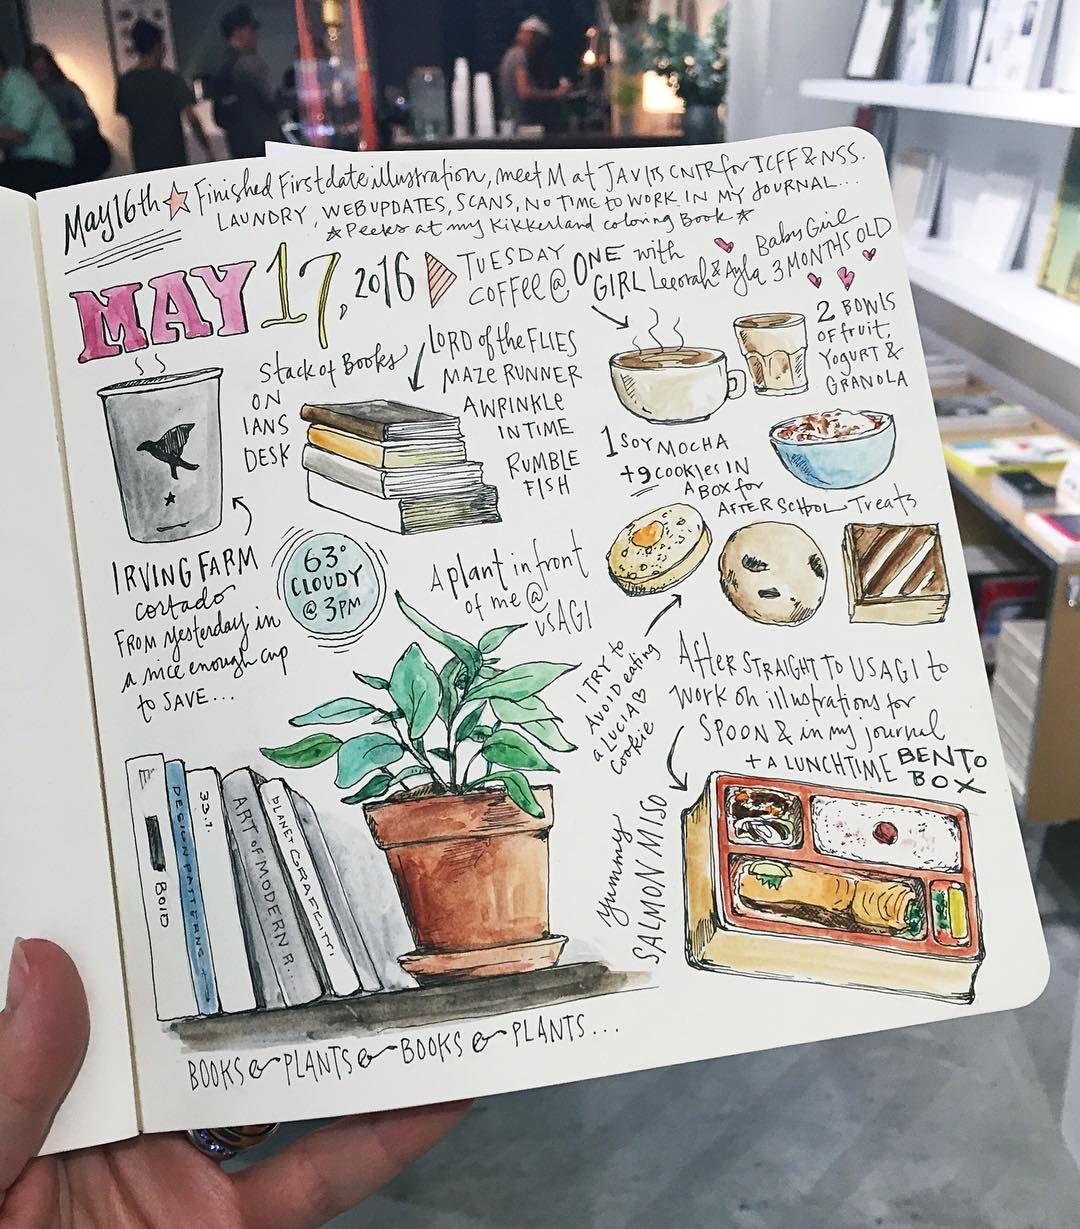 May 16th Finished First date illustration, meet M at JAVITS CNTR for ICFF & NSS.
LAUNDRY, WEB UPDATES, SCANS, NO TIME to WORK IN MY JOURNAL...
Peeks at my Kikkerland coloring Book
MAY 17, 2016
TUESDAY
COFFEE @ ONE with
GIRL Leeorah & Ayla
Baby Girl
3 MONTHS OLD
Stack of Books
ON
IANS
DESK
LORD of the FLIES
MAZE RUNNER
A WRINKLE
IN TIME
RUMBLE
FISH
2 BOWLS
of fruit,
Yogurt &
GRANOLA
1 SOY MOCHA
+ 9 COOKIES IN
A BOX for
AFTER SCHOOL Treats
IRVING FARM
cortado
FROM yesterday in
a nice enough cup
to SAVE...
63°
CLOUDY
@ 3PM
A plant in front
of me @
USAGI
I TRY to
AVOID eating
a LUCIA
cookie
After STRAIGHT TO USAGI to
work on illustrations for
SPOON & in my journal
+ A LUNCHTIME BENTO
BOX
Yummy
SALMON MISO
BOID
DESIGN PATTERNS
33.1.
ART of MODERN R..
PLANET GRAFFITI.
BOOKS & PLANTS & BOOKS & PLANTS...